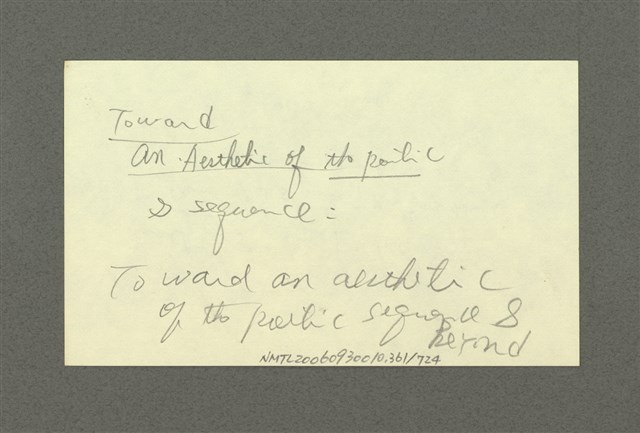 Toward
An Aesthetic of the poetic
& sequence:
Toward an aesthetic
of the poetic sequence &
Beyond
NMTL20060930010.361/724